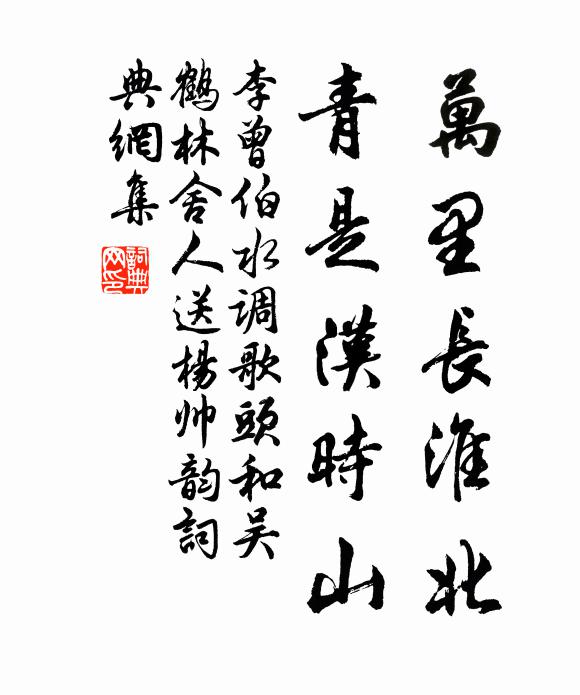 萬里長淮北
青是漢時山
李曾伯水調歌頭和吴
鶴林舍人送楊帅韵詞
典網集
詞典
网印